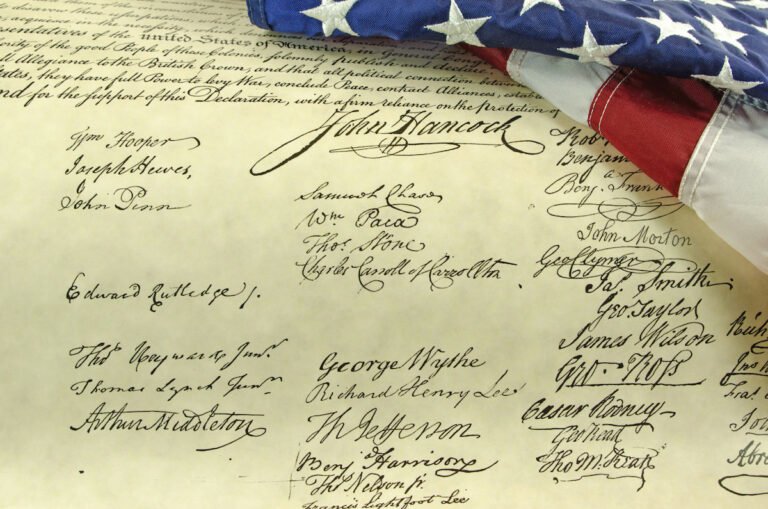 acquiesce in the necessity
Representatives of the united States of America, in
of the good People of these Colonies, solemnly publish and
Allegiance to the British Crown, and that all political connection between
States, they have full Power to levy War, conclude Peace, contract Alliances, estab
nd for the support of this Declaration, with a firm reliance on the protection of
John Hancock
Wm Hooper
Joseph Hewes,
John Penn
Edward Rutledge J.
Thos Heyward Junr.
Thomas Lynch Junr.
Arthur Middleton
Samuel Chase
Wm. Paca
Thos. Stone
Charles Carroll of Carrollton
George Wythe
Richard Henry Lee
Th Jefferson
Benja Harrison
Thos Nelson jr.
Francis Lightfoot Lee
Rob
Benjam
Benja. Frank
John Morton
Geo Clymer
Jas. Smith
Geo. Taylor
James Wilson
Geo. Ross
Caesar Rodney
Geo Read
Tho M:Kean
Abra